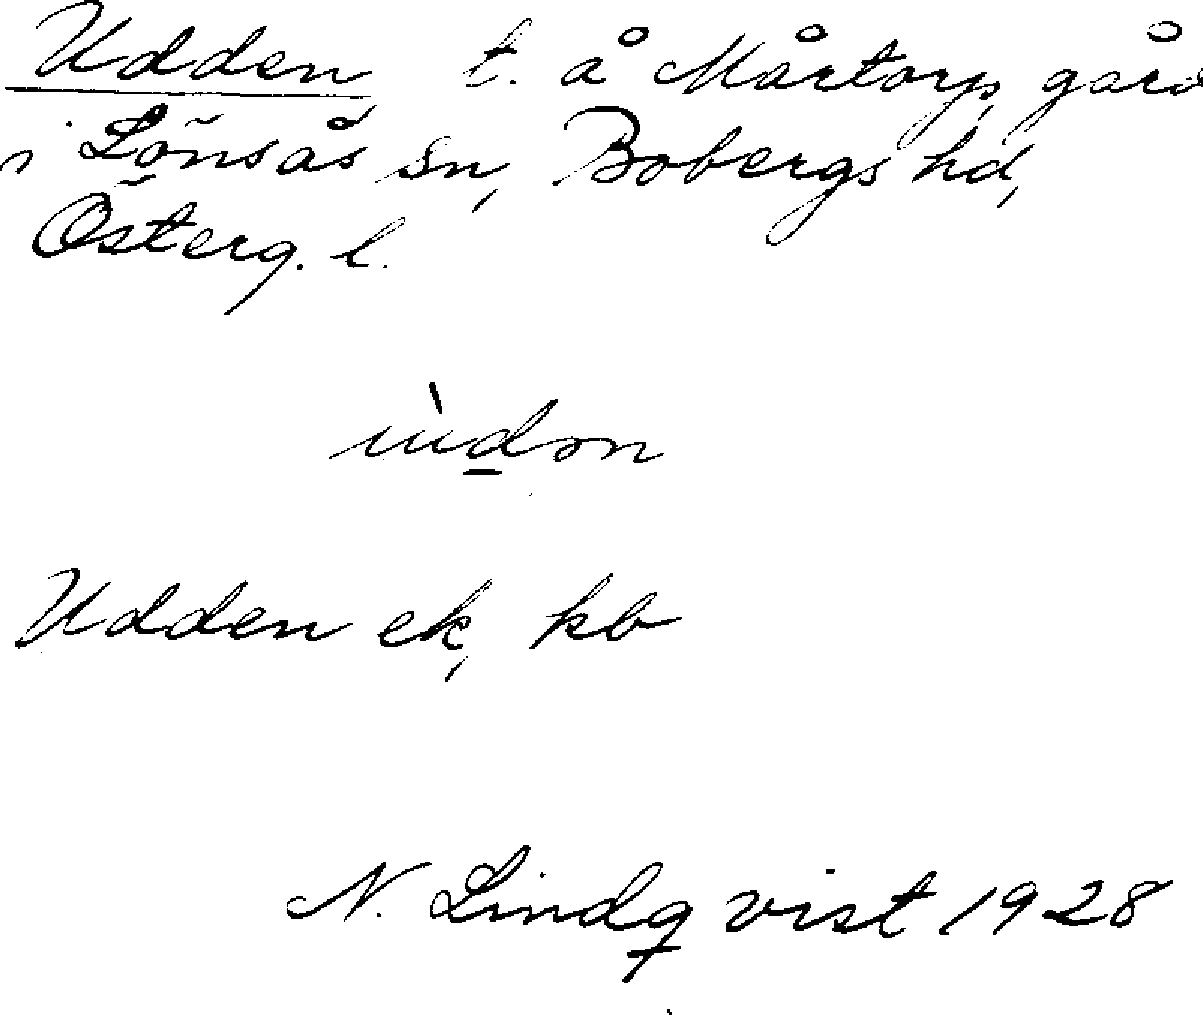 Udden t. å Mårtorp gård
i Lönsås sn, Bobergs hd,
Österg. l.
ùdən
Udden ek, kb
N. Lindqvist 1928